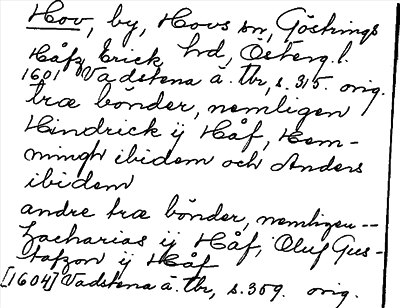 Hov, by, Hovs sn, Göstrings
Håfz Erick hd, Österg.l.
1601 Vadstena ä. tbr, s. 315. orig.
træ bönder, nemligen
Hindrick ij Håf, Hem-
mingh ibidem och Anders
ibidem
andre træ bönder, nemligen --
Zacharias ij Håf, Oluf Gus-
tafzon ij Håf
[1604] Vadstena ä. tbr, s. 359. orig.